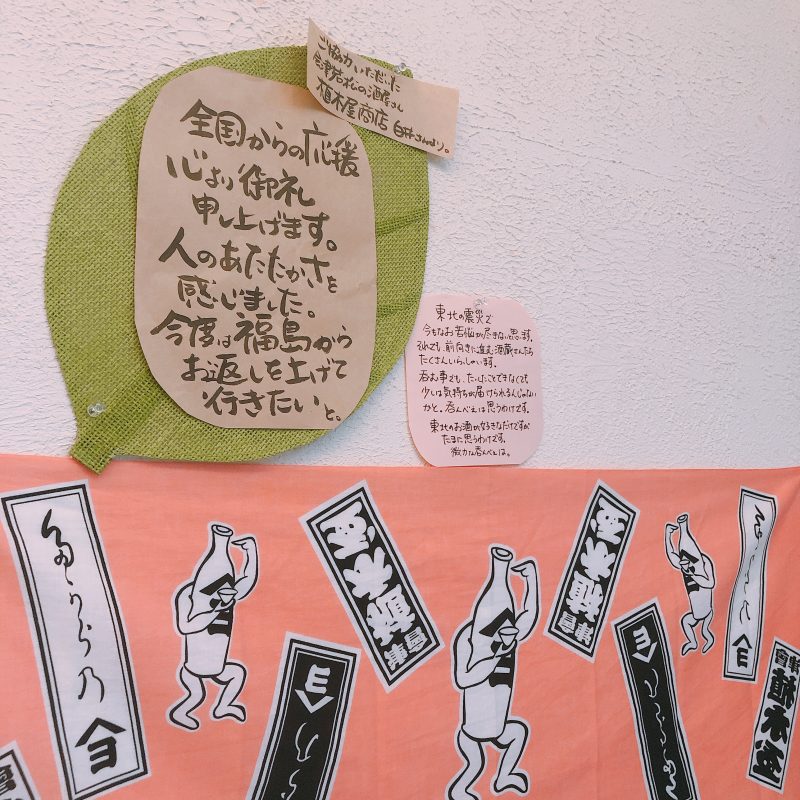 ご協力いただいた
会津若松の酒屋さん
植木屋商店 白井さんより。
全国からの応援
心より御礼
申し上げます。
人のあたたかさを
感じました。
今度は福島から
お返しを上げて
行きたいと。
東北の震災で
今もなお苦悩が尽きない思います。
それでも、前向きに進む酒蔵さんたち
たくさんいらっしゃいます。
呑む事でも、たいしたことできなくても
少しは気持ちが届けられるんじゃない
かと。呑んべえは思うわけです。
東北のお酒が好きなだけですが
たまに思うわけです。
微力な呑んべえは。
植木屋